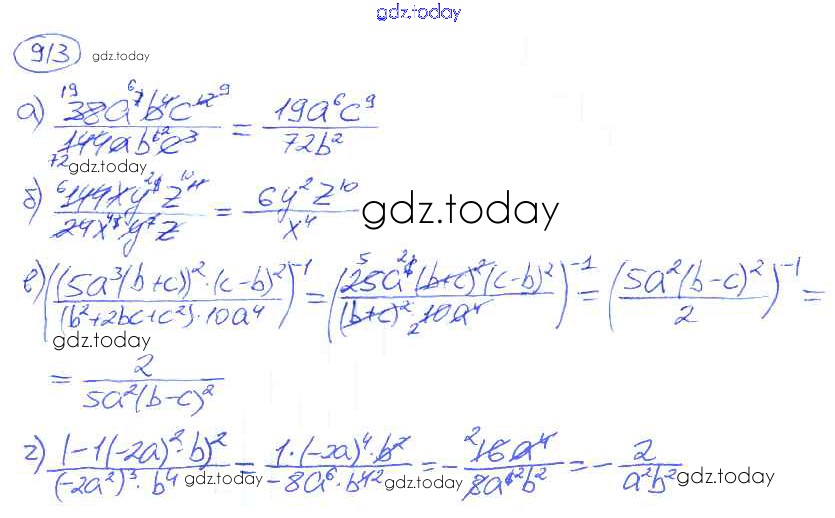 gdz.today
913 gdz.today
а) 38a⁷b⁴c¹²/144ab⁶c³ = 19a⁶c⁹/72b²
gdz.today
б) 144xy⁹z¹¹/24x⁵y⁷z = 6y²z¹⁰/x⁴ gdz.today
в) ((5a³(b+c))²·(c-b)²/(b²+2bc+c²)·10a⁴)⁻¹ = (25a⁶(b+c)²(c-b)²/(b+c)²·10a⁴)⁻¹ = (5a²(b-c)²/2)⁻¹ =
gdz.today
= 2/5a²(b-c)²
г) (-1(-2a)²·b)²/(-2a²)³·b⁴ = 1·(-2a)⁴·b²/-8a⁶·b⁴ = -16a⁴/8a⁶b² = -2/a²b²
gdz.today gdz.today gdz.today